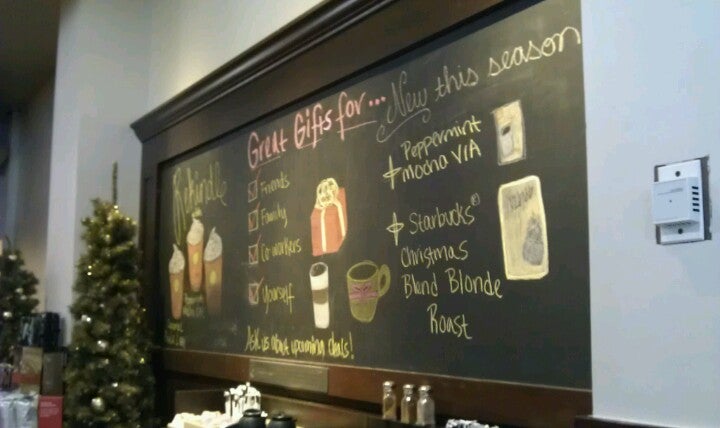 Rekindle
Great Gifts for...
Friends
Family
Co-workers
Yourself
Ask us about upcoming deals!
New this season
Peppermint
mocha VIA
Starbucks®
Christmas
Blend Blonde
Roast